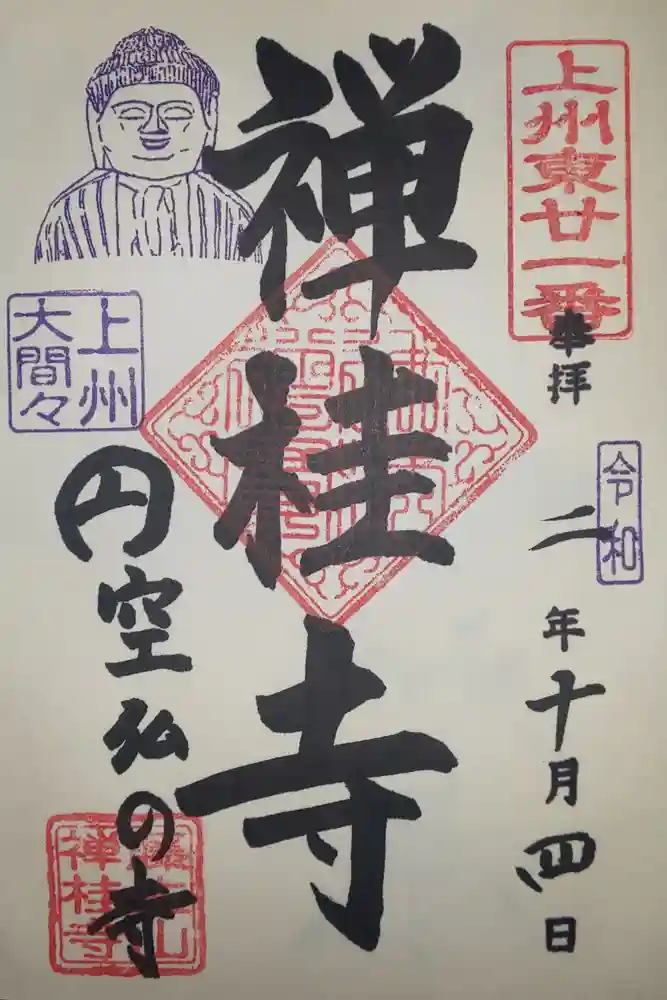 上州東廿一番
奉拝
令和
二年十月四日
禅桂寺
上州
大間々
円空仏の寺
山
禅桂寺